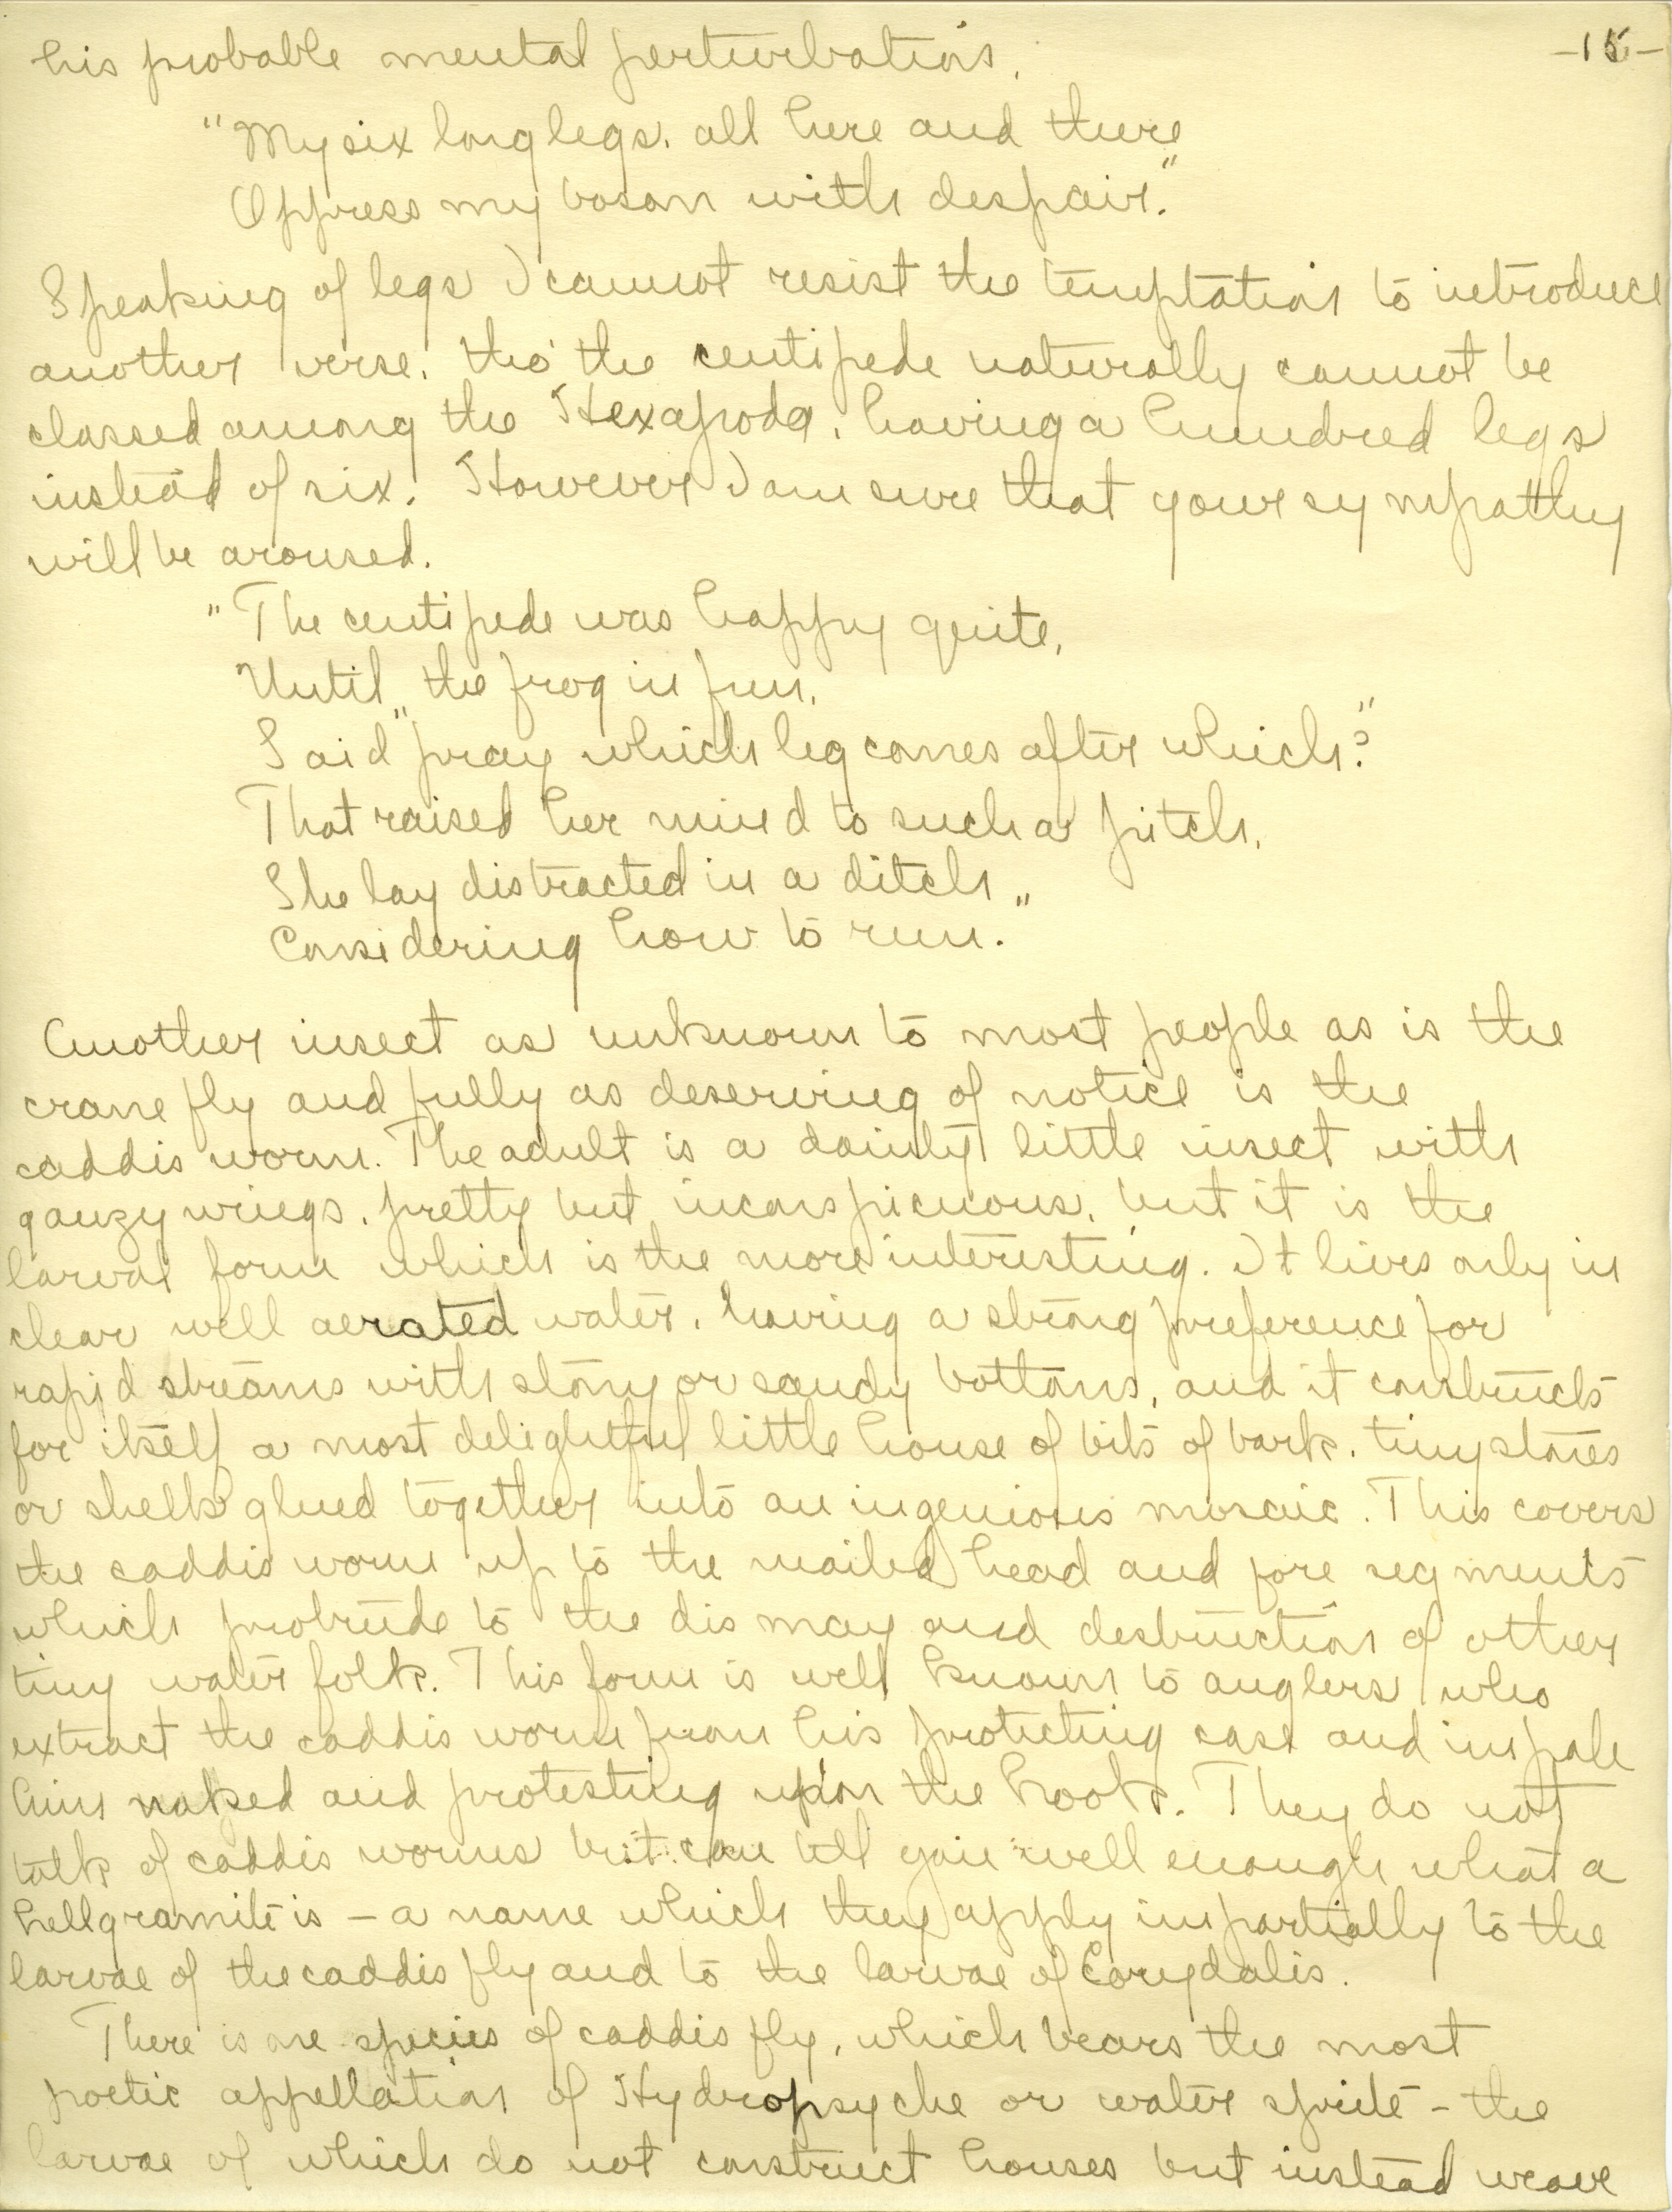 -15-
his probable mental perturbations.
"My six long legs, all here and there
Oppress my bosom with despair."
Speaking of legs I cannot resist the temptation to introduce
another verse, tho' the centipede naturally cannot be
classed among the Hexapoda, having a hundred legs
instead of six. However I am sure that your sympathy
will be aroused.
"The centipede was happy quite,
Until the frog in fun,
Said "pray which leg comes after which?"
That raised her mind to such a pitch,
She lay distracted in a ditch
Considering how to run."
Another insect as unknown to most people as is the
crane fly and fully as deserving of notice is the
caddis worm. The adult is a dainty little insect with
gauzy wings, pretty but inconspicuous, but it is the
larval form which is the more interesting. It lives only in
clear well aerated water, having a strong preference for
rapid streams with stony or sandy bottoms, and it constructs
for itself a most delightful little house of bits of bark, tiny stones
or shells glued together into an ingenious mosaic. This covers
the caddis worm up to the mailed head and fore segments
which protrude to the dismay and destruction of other
tiny water folk. This form is well known to anglers who
extract the caddis worm from his protecting case and impale
him naked and protesting upon the hook. They do not
talk of caddis worms but can tell you well enough what a
hellgramite is - a name which they apply impartially to the
larvae of the caddis fly and to the larvae of Corydalis.
There is one species of caddis fly, which bears the most
poetic appellation of Hydropsyche or water sprite - the
larvae of which do not construct houses but instead weave